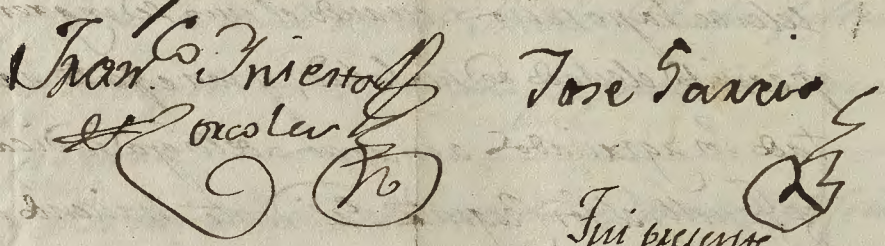 Fran.co Iniesta
Jose Garcia
Fui presente